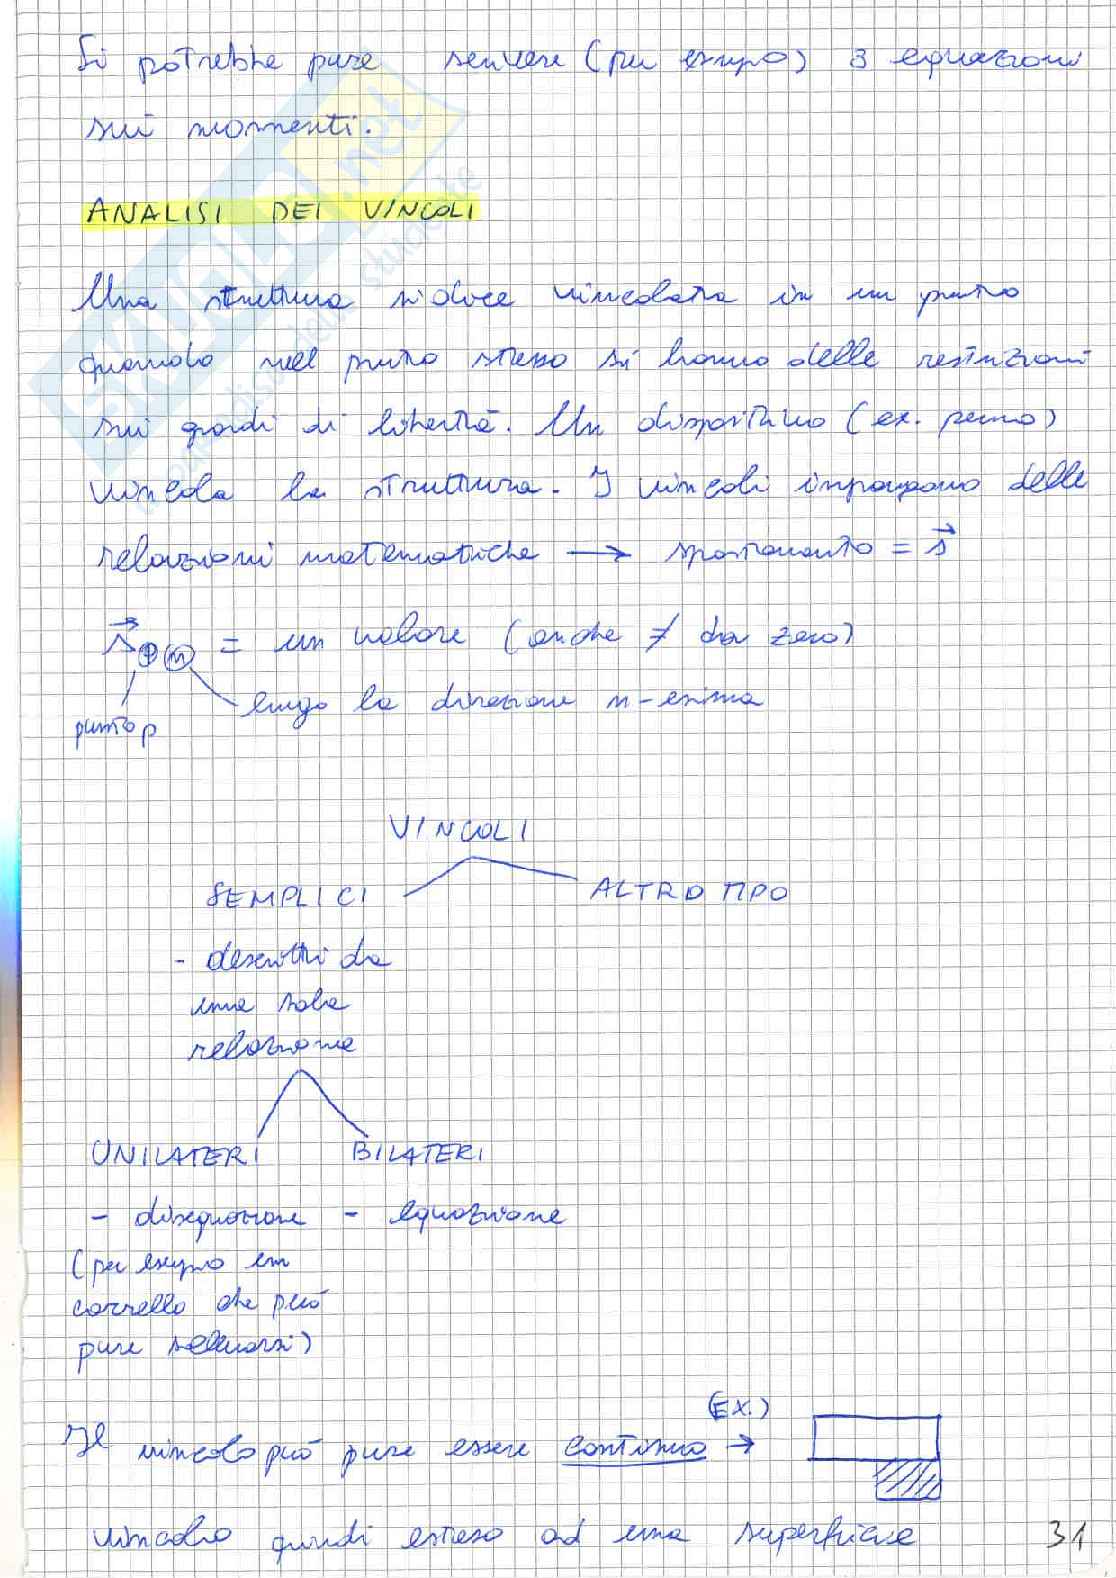 Si potrebbe pure scrivere (per esempio) 3 equazioni
sui momenti.
ANALISI DEI VINCOLI
Una struttura si dice vincolata in un punto
quando nel punto stesso si hanno delle restrizioni
sui gradi di libertà. Un dispositivo (ex. perno)
vincola la struttura. I vincoli impongono delle
relazioni matematiche → spostamento = s⃗
s⃗ P n = un valore (anche ≠ da zero)
lungo la direzione n-esima
punto p
VINCOLI
SEMPLICI ALTRO TIPO
- descritti da
una sola
relazione
UNILATERI BILATERI
- disequazione - equazione
(per esempio un
carrello che può
pure sollevarsi)
(EX.)
Il vincolo può pure essere continuo →
vincolo quindi esteso ad una superficie 31